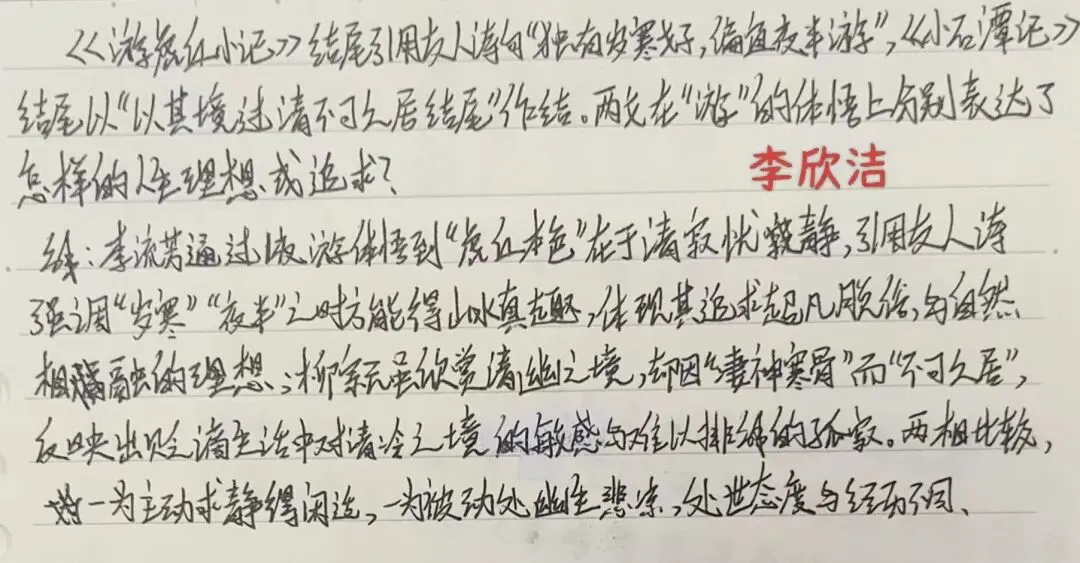 《游虎丘小记》结尾引用友人诗句“独有岁寒好，偏宜夜半游”，《小石潭记》
结尾以“以其境过清不可久居结尾”作结。两文在“游”的体悟上分别表达了
怎样的人生理想或追求？
李欣洁
答：李流芳通过夜游体悟到“虎丘本色”在于清寂恍静，引用友人诗
强调“岁寒”“夜半”之时方能得山水真趣，体现其追求超凡脱俗，与自然
相融的理想；柳宗元虽欣赏清幽之境，却因“凄神寒骨”而“不可久居”，
反映出贬谪生活中对清冷之境的敏感与难以排解的孤寂。两相比较，
一为主动求静得闲适，一为被动处幽生悲凉，处世态度与经历不同、